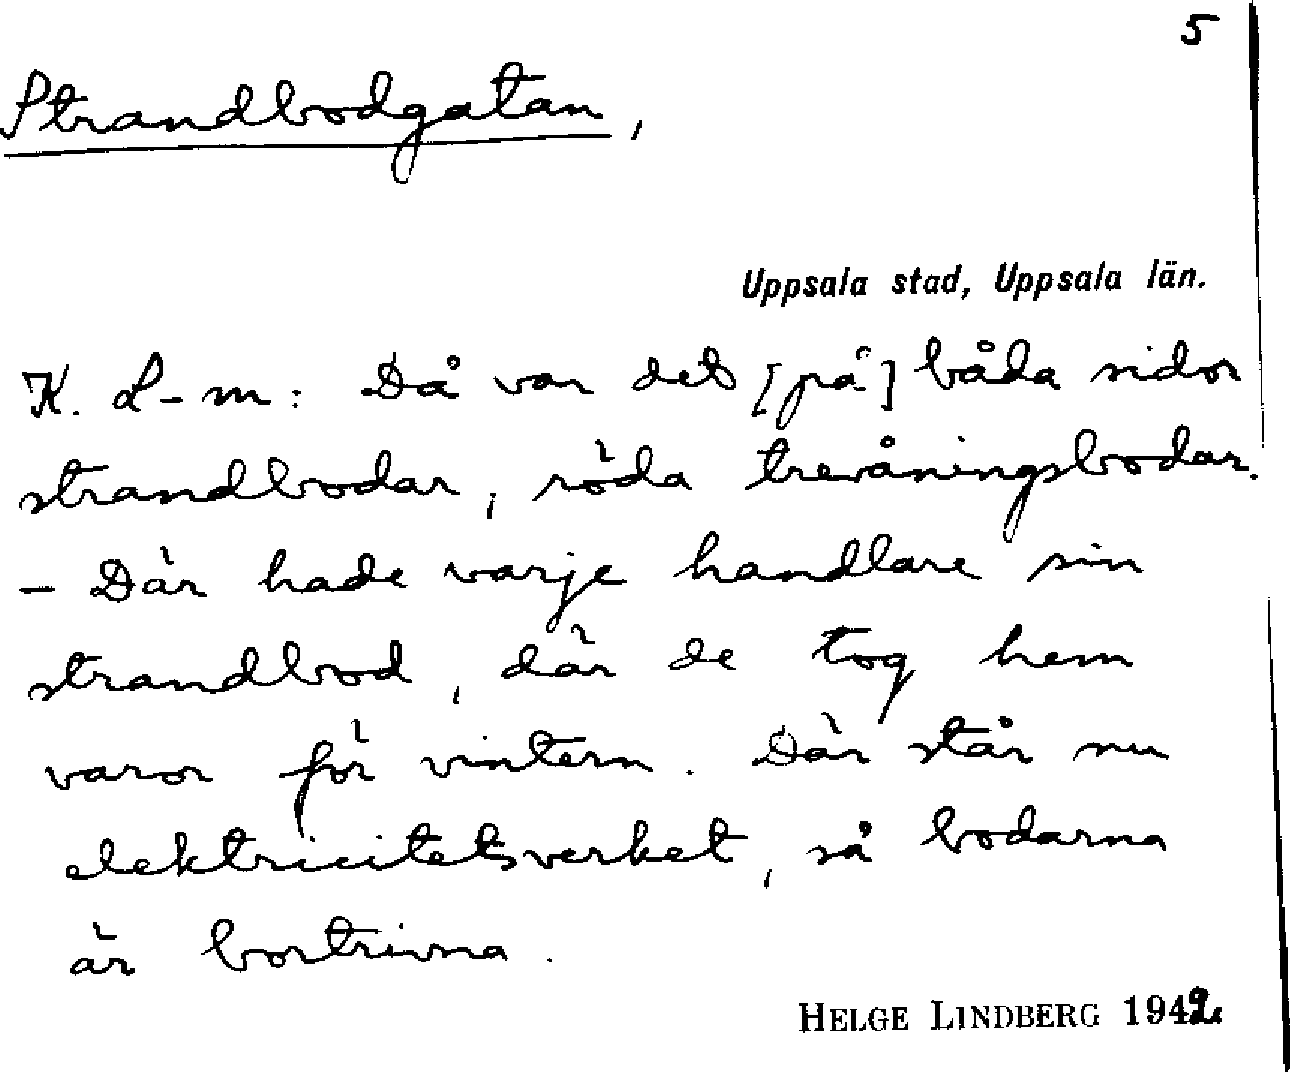 5
Strandbodgatan,
Uppsala stad, Uppsala län.
K. L-m: Då var det [på] båda sidor
strandbodar, röda trevåningsbodar.
- Där hade varje handlare sin
strandbod, där de tog hem
varor för vintern. Där står nu
elektricitetsverket, så bodarna
är bortrivna.
HELGE LINDBERG 1942